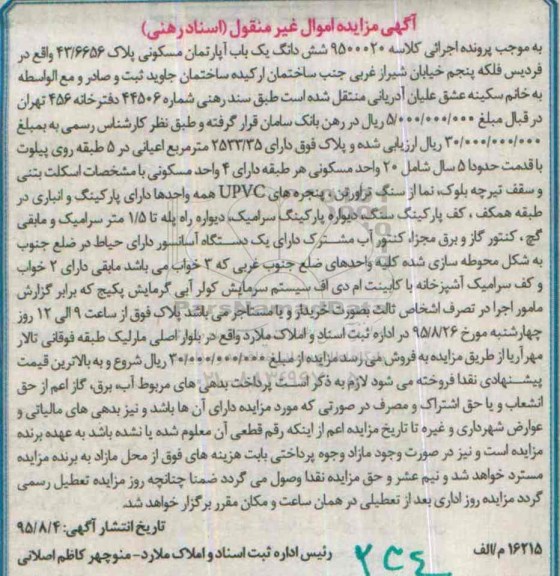 آگهی مزایده اموال غیر منقول (اسناد رهنی)
به موجب پرونده اجرائی کلاسه ۹۵۰۰۰۲۰ شش دانگ یک باب آپارتمان مسکونی پلاک ۴۳/۶۶۵۶ واقع در
فردیس فلکه پنجم خیابان شیراز غربی جنب ساختمان ارکیده ساختمان جاوید ثبت و صادر و مع الواسطه
به خانم سکینه عشق علیان آذریانی منتقل شده است طبق سند رهنی شماره ۴۴۵۰۶ دفترخانه ۴۵۶ تهران
در قبال مبلغ ۵/۰۰۰/۰۰۰/۰۰۰ ریال در رهن بانک سامان قرار گرفته و طبق نظر کارشناس رسمی به بمبلغ
۳۰/۰۰۰/۰۰۰/۰۰۰ ریال ارزیابی شده و پلاک فوق دارای ۲۵۳۳/۳۵ مترمربع اعیانی در ۵ طبقه روی پیلوت
با قدمت حدودا ۵ سال شامل ۲۰ واحد مسکونی هر طبقه دارای ۴ واحد مسکونی با مشخصات اسکلت بتنی
و سقف تیرچه بلوک، نما از سنگ تراورتن، پنجره های UPVC همه واحدها دارای پارکینگ و انباری در
طبقه همکف، کف پارکینگ سنگ، دیواره پارکینگ سرامیک، دیواره راه پله تا ۱/۵ متر سرامیک و مابقی
گچ، کنتور گاز و برق مجزا، کنتور آب مشترک دارای یک دستگاه آسانسور دارای حیاط در ضلع جنوب
به شکل محوطه سازی شده کلیه واحدهای ضلع جنوب غربی که ۳ خواب می باشد مابقی دارای ۲ خواب
و کف سرامیک آشپزخانه با کابینت ام دی اف سیستم سرمایش کولر آبی گرمایش پکیج که برابر گزارش
مامور اجرا در تصرف اشخاص ثالث بصورت خریدار و یا مستاجر می باشد پلاک فوق از ساعت ۹ الی ۱۲ روز
چهارشنبه مورخ ۹۵/۸/۲۶ در اداره ثبت اسناد و املاک ملارد واقع در بلوار اصلی مارلیک طبقه فوقانی تالار
مهرآریا از طریق مزایده به فروش می رسد مزایده از مبلغ ۳۰/۰۰۰/۰۰۰/۰۰۰ ریال شروع و به بالاترین قیمت
پیشنهادی نقدا فروخته می شود لازم به ذکر است پرداخت بدهی های مربوط آب، برق، گاز اعم از حق
انشعاب و یا حق اشتراک و مصرف در صورتی که مورد مزایده دارای آن ها باشد و نیز بدهی های مالیاتی و
عوارض شهرداری و غیره تا تاریخ مزایده اعم از اینکه رقم قطعی آن معلوم شده یا نشده باشد به عهده برنده
مزایده است و نیز در صورت وجود مازاد وجوه پرداختی بابت هزینه های فوق از محل مازاد به برنده مزایده
مسترد خواهد شد و نیم عشر و حق مزایده نقدا وصول می گردد ضمنا چنانچه روز مزایده تعطیل رسمی
گردد مزایده روز اداری بعد از تعطیلی در همان ساعت و مکان مقرر برگزار خواهد شد.
تاریخ انتشار آگهی: ۹۵/۸/۴
۱۶۲۱۵ م/الف رئیس اداره ثبت اسناد و املاک ملارد- منوچهر کاظم اصلانی